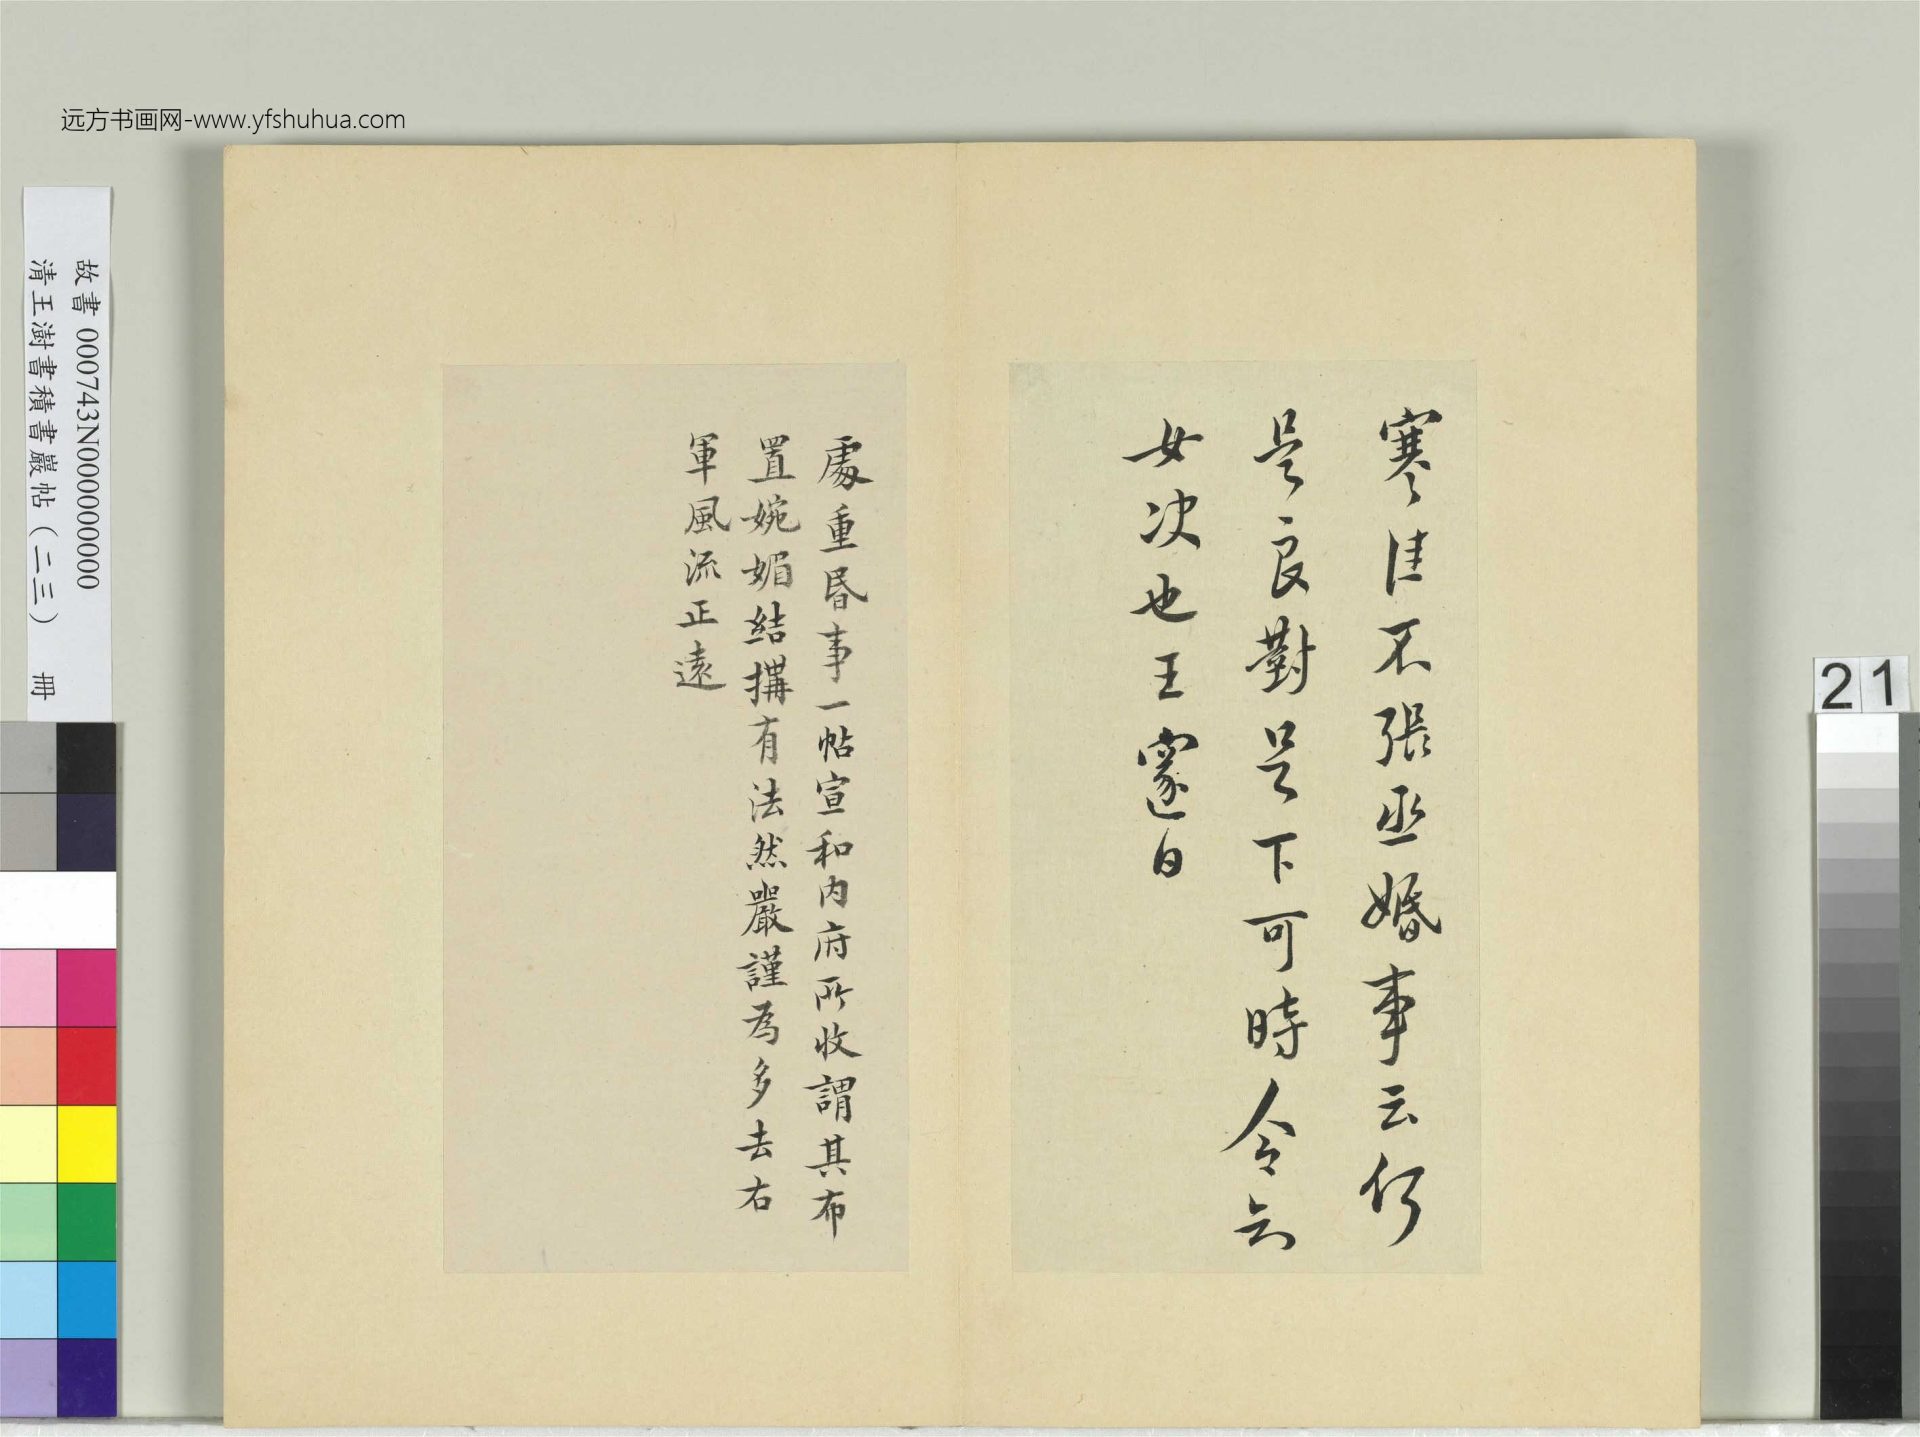 远方书画网-www.yfshuhua.com
故書 000743N000000000
清王澍書積書巖帖（二三） 冊
21
寒佳不張丞婚事云何
是良對是下可時令知
女决也王邃白
處重昏事一帖宣和内府所收謂其布
置婉媚結搆有法然嚴謹為多去右
軍風流正遠